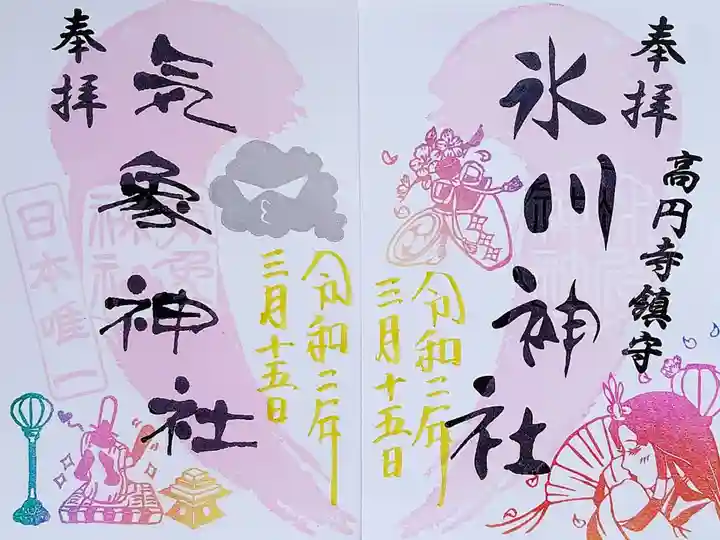 奉拝
高円寺鎮守
氷川神社
令和二年
三月十五日
奉拝
気象神社
日本唯一
令和二年
三月十五日